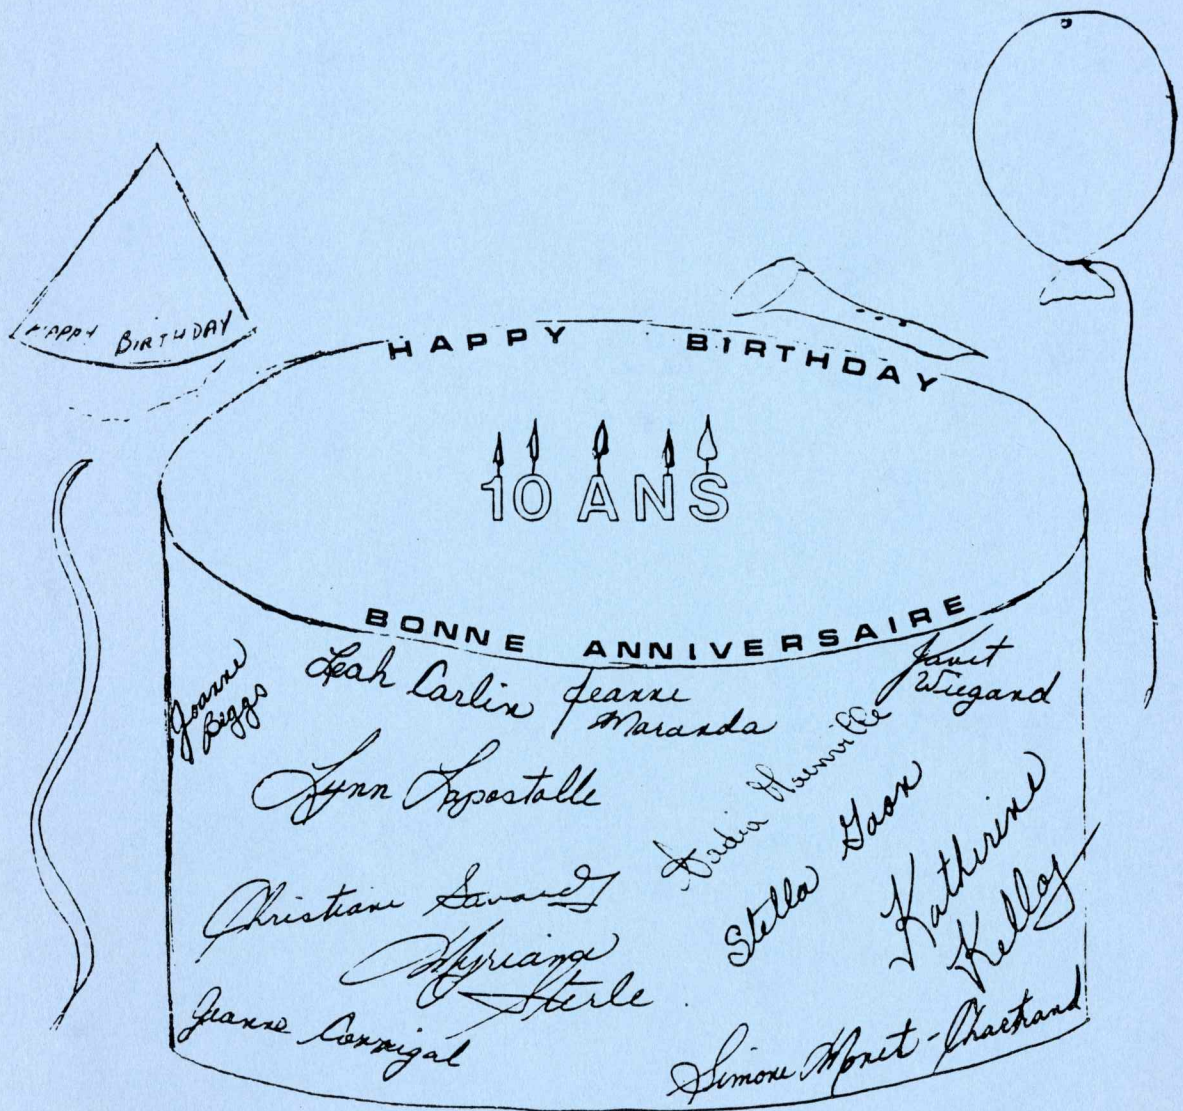 HAPPY BIRTHDAY
HAPPY BIRTHDAY
10 ANS
BONNE ANNIVERSAIRE
Joanne
Beggs
Leah Carlin
Jeanne
Maranda
Janet
Wiegand
Lynn Lapostolle
Nadia
Stella Goon
Katherine
Kelley
Christiane Savard
Myriame
Sterle
Jeanne
Simone Monet-Chartrand